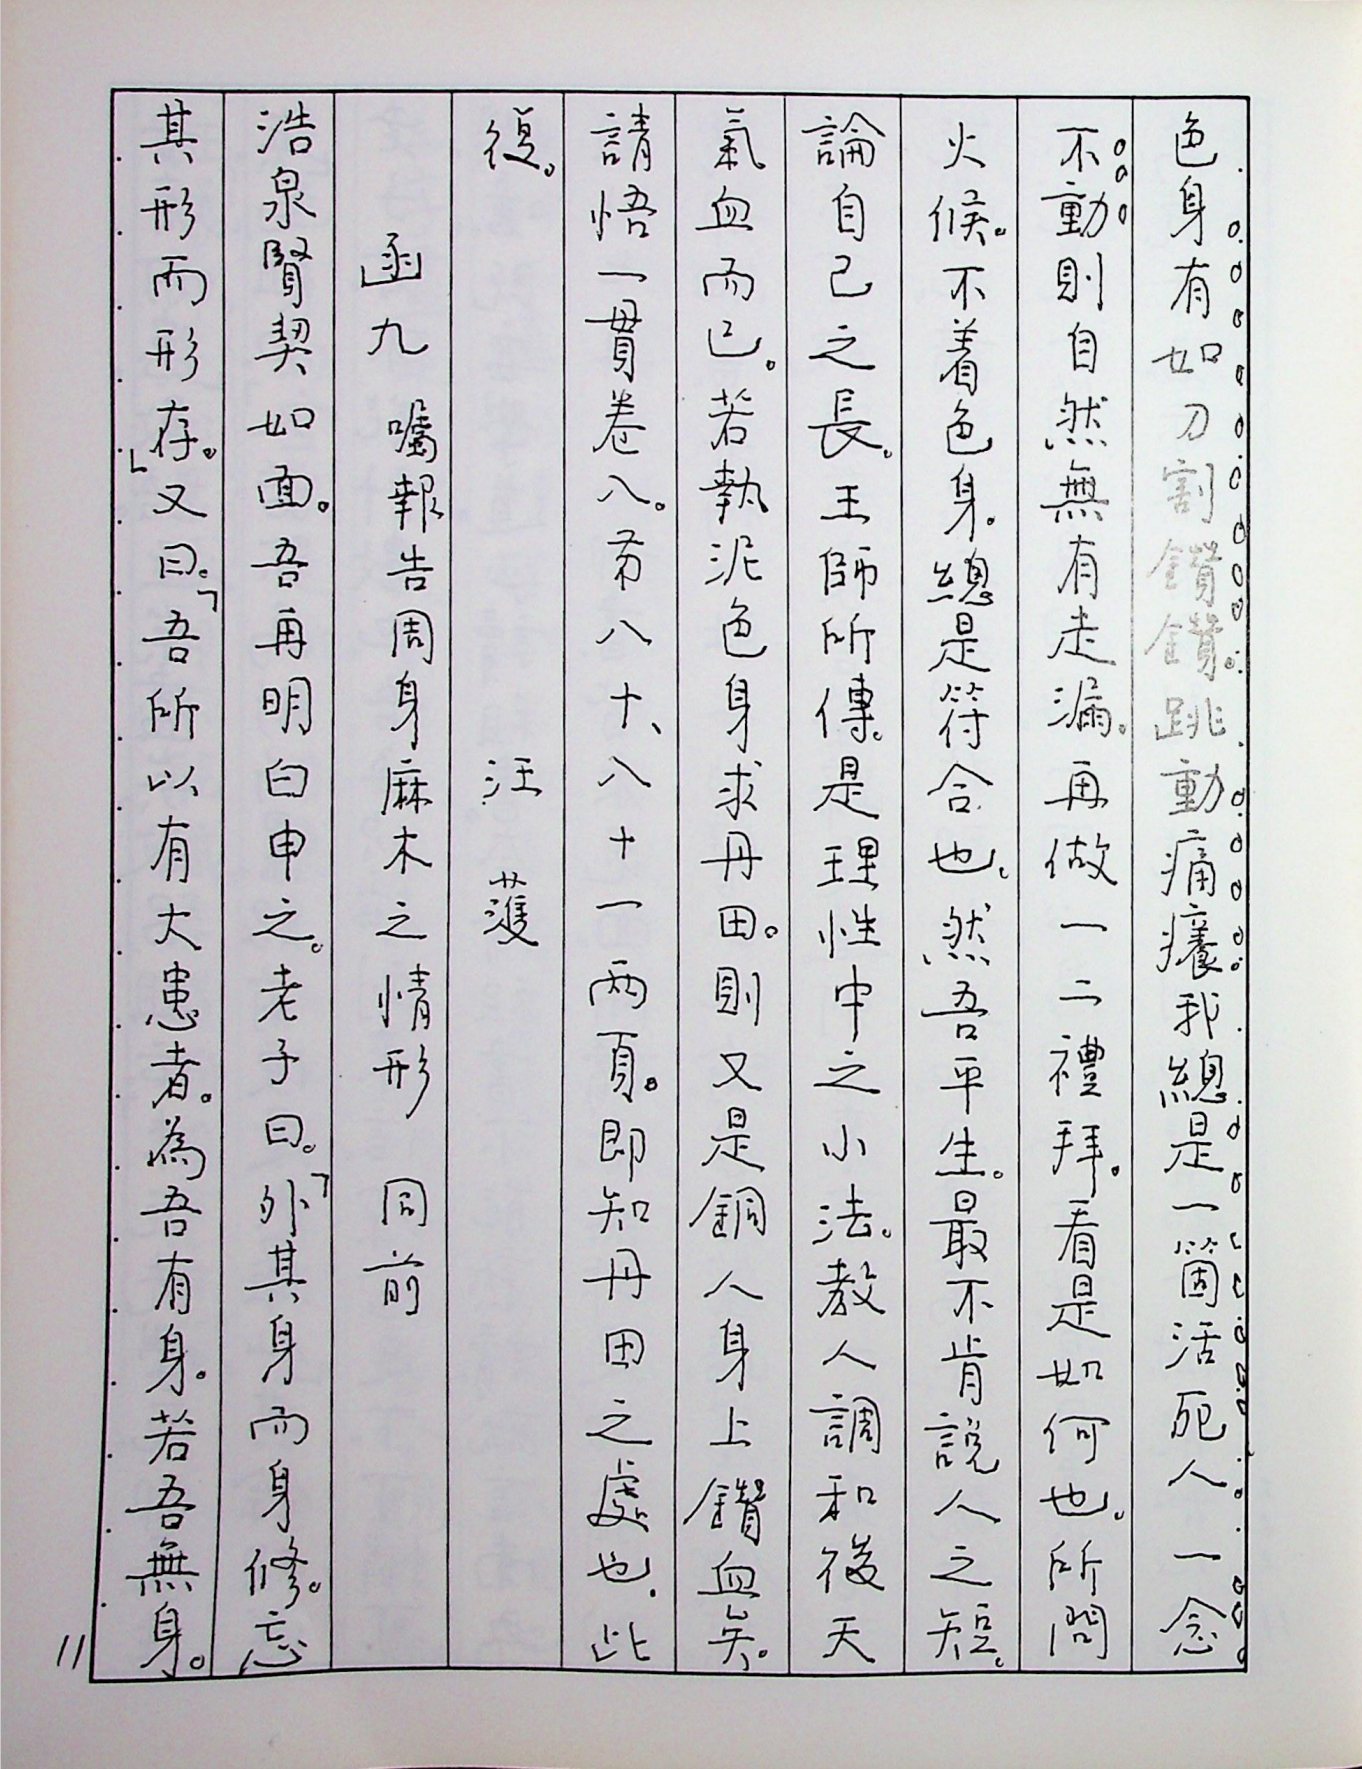 色身有如刀割鑽鑽。跳動痛癢我總是一箇活死人。一念
不動則自然無有走漏。再做一二禮拜。看是如何也。所問
火候。不着色身。總是符合也。然吾平生。最不肯說人之短。
論自己之長。王師所傳。是理性中之小法。教人調和後天
氣血而已。若執泥色身求丹田。則又是銅人身上鑽血矣。
請悟一貫卷八。苐八十、八十一兩頁。即知丹田之處也。此
復。　　汪　蒦
函九　囑報告周身麻木之情形　同前
浩泉賢契如面。吾再明白申之。老子曰。「外其身而身修。忘
其形而形存。」又曰。「吾所以有大患者。為吾有身。若吾無身。
11